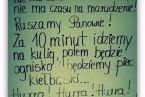 nie ma czasu na marudzenie!
Ruszamy Panowie!
Za 10 minut idziemy
na kulig, potem będzie
ognisko i będziemy piec
kiełbaski...
Hurra! Hurra! Hura!